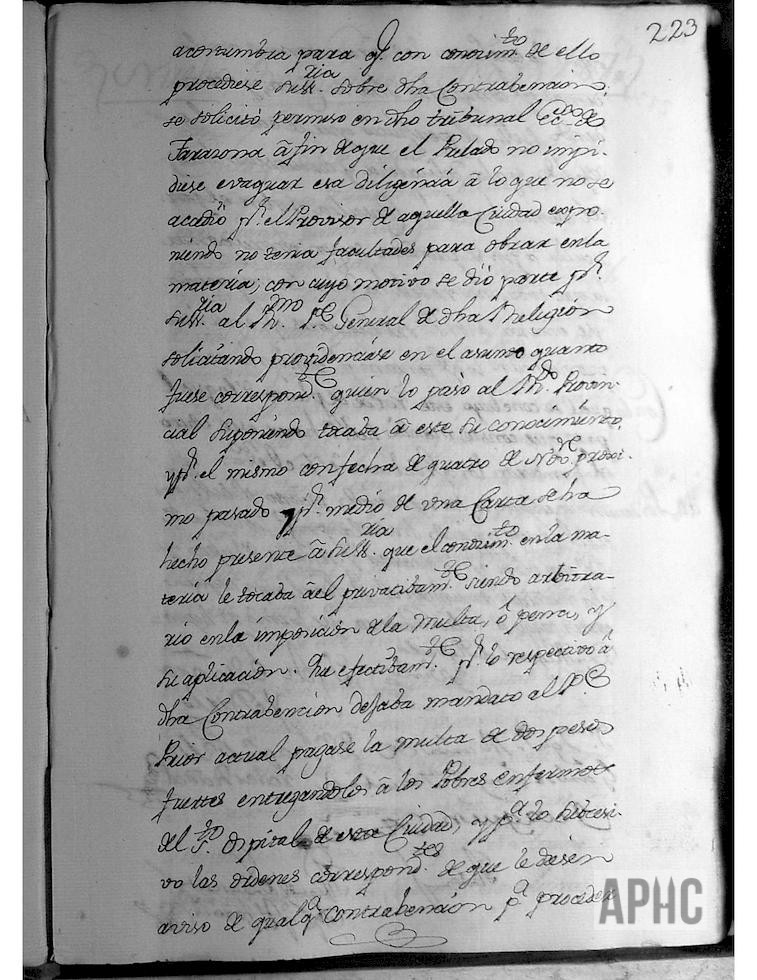 223
acostumbra para q.e con conozim.to de ello
procediese su ss.ria sobre dha Contrabencion,
se solicitó permiso en dho tribunal Ecc.co de
Tarazona â fin de que el Prelado no impi-
diese evaquar esa diligéncia â lo que no se
accedió p.r el Provisor de aquella Ciudad expo-
niendo no tenia facultades para obrar en la
materia; con cuyo motivo se dió parte p.r
su ss.ria al R.mo P.e General de dha Religión
solicitando providenciáse en el asunto quanto
fuese correspond.te quien lo pasó al R.do Provin-
cial suponiendo tocaba â este su conocimiento,
y p.r el mismo con fecha de quatro de Nov.re proxi-
mo pasado y p.r medio de una Carta se ha
hecho presente â su ss.ria que el conozim.to en la ma-
teria le tocaba âel privatibam.te siendo arbitra-
rio en la imposición de la multa, ô pena, y
su aplicación. Que efectibam.te p.r lo respectivo â
dha Contrabención dejaba mandato al P.e
Prior actual pagase la multa de dos pesos
fuertes entregandolos â los Pobres enfermos
del S.to Ospital de esta Ciudad, y p.a lo subcesi-
vo las ordenes correspond.tes de que le diesen
aviso de qualq.a contrabención p.a proceder
APHC